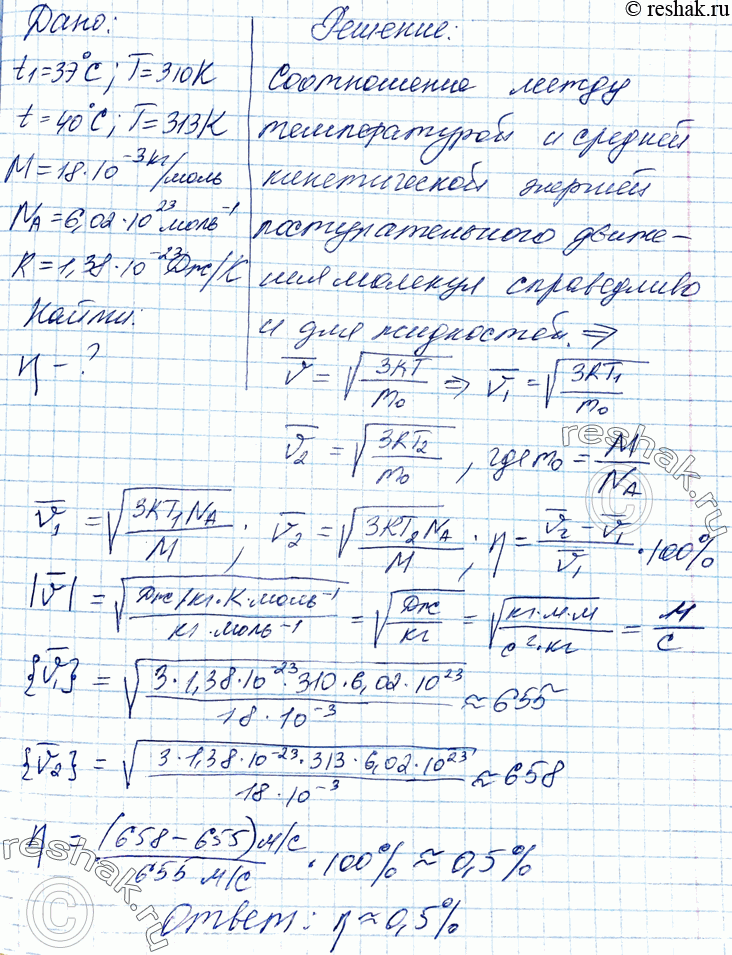 © reshak.ru
Дано:
t₁=37°C; T=310K
t=40°C; T=313K
M=18·10⁻³ кг/моль
N_A=6,02·10²³ моль⁻¹
k=1,38·10⁻²³ Дж/K
Найти:
η - ?
Решение:
Соотношение между
температурой и средней
кинетической энергией
поступательного движе-
ния молекул справедливо
и для жидкостей. ⇒
v̅ = √(3kT/m₀) ⇒ v̅₁ = √(3kT₁/m₀)
v̅₂ = √(3kT₂/m₀), где m₀ = M/N_A
v̅₁ = √(3kT₁N_A/M); v̅₂ = √(3kT₂N_A/M); η = (v̅₂ - v̅₁)/v̅₁ · 100%
|v̅| = √(Дж/кг·K·моль⁻¹/кг·моль⁻¹) = √(Дж/кг) = √(кг·м·м/с²·кг) = м/с
{v̅₁} = √(3·1,38·10⁻²³·310·6,02·10²³/18·10⁻³) ≈ 655
{v̅₂} = √(3·1,38·10⁻²³·313·6,02·10²³/18·10⁻³) ≈ 658
η = (658-655) м/с / 655 м/с · 100% ≈ 0,5%
Ответ: η ≈ 0,5%
reshak.ru
©
reshak.ru
©